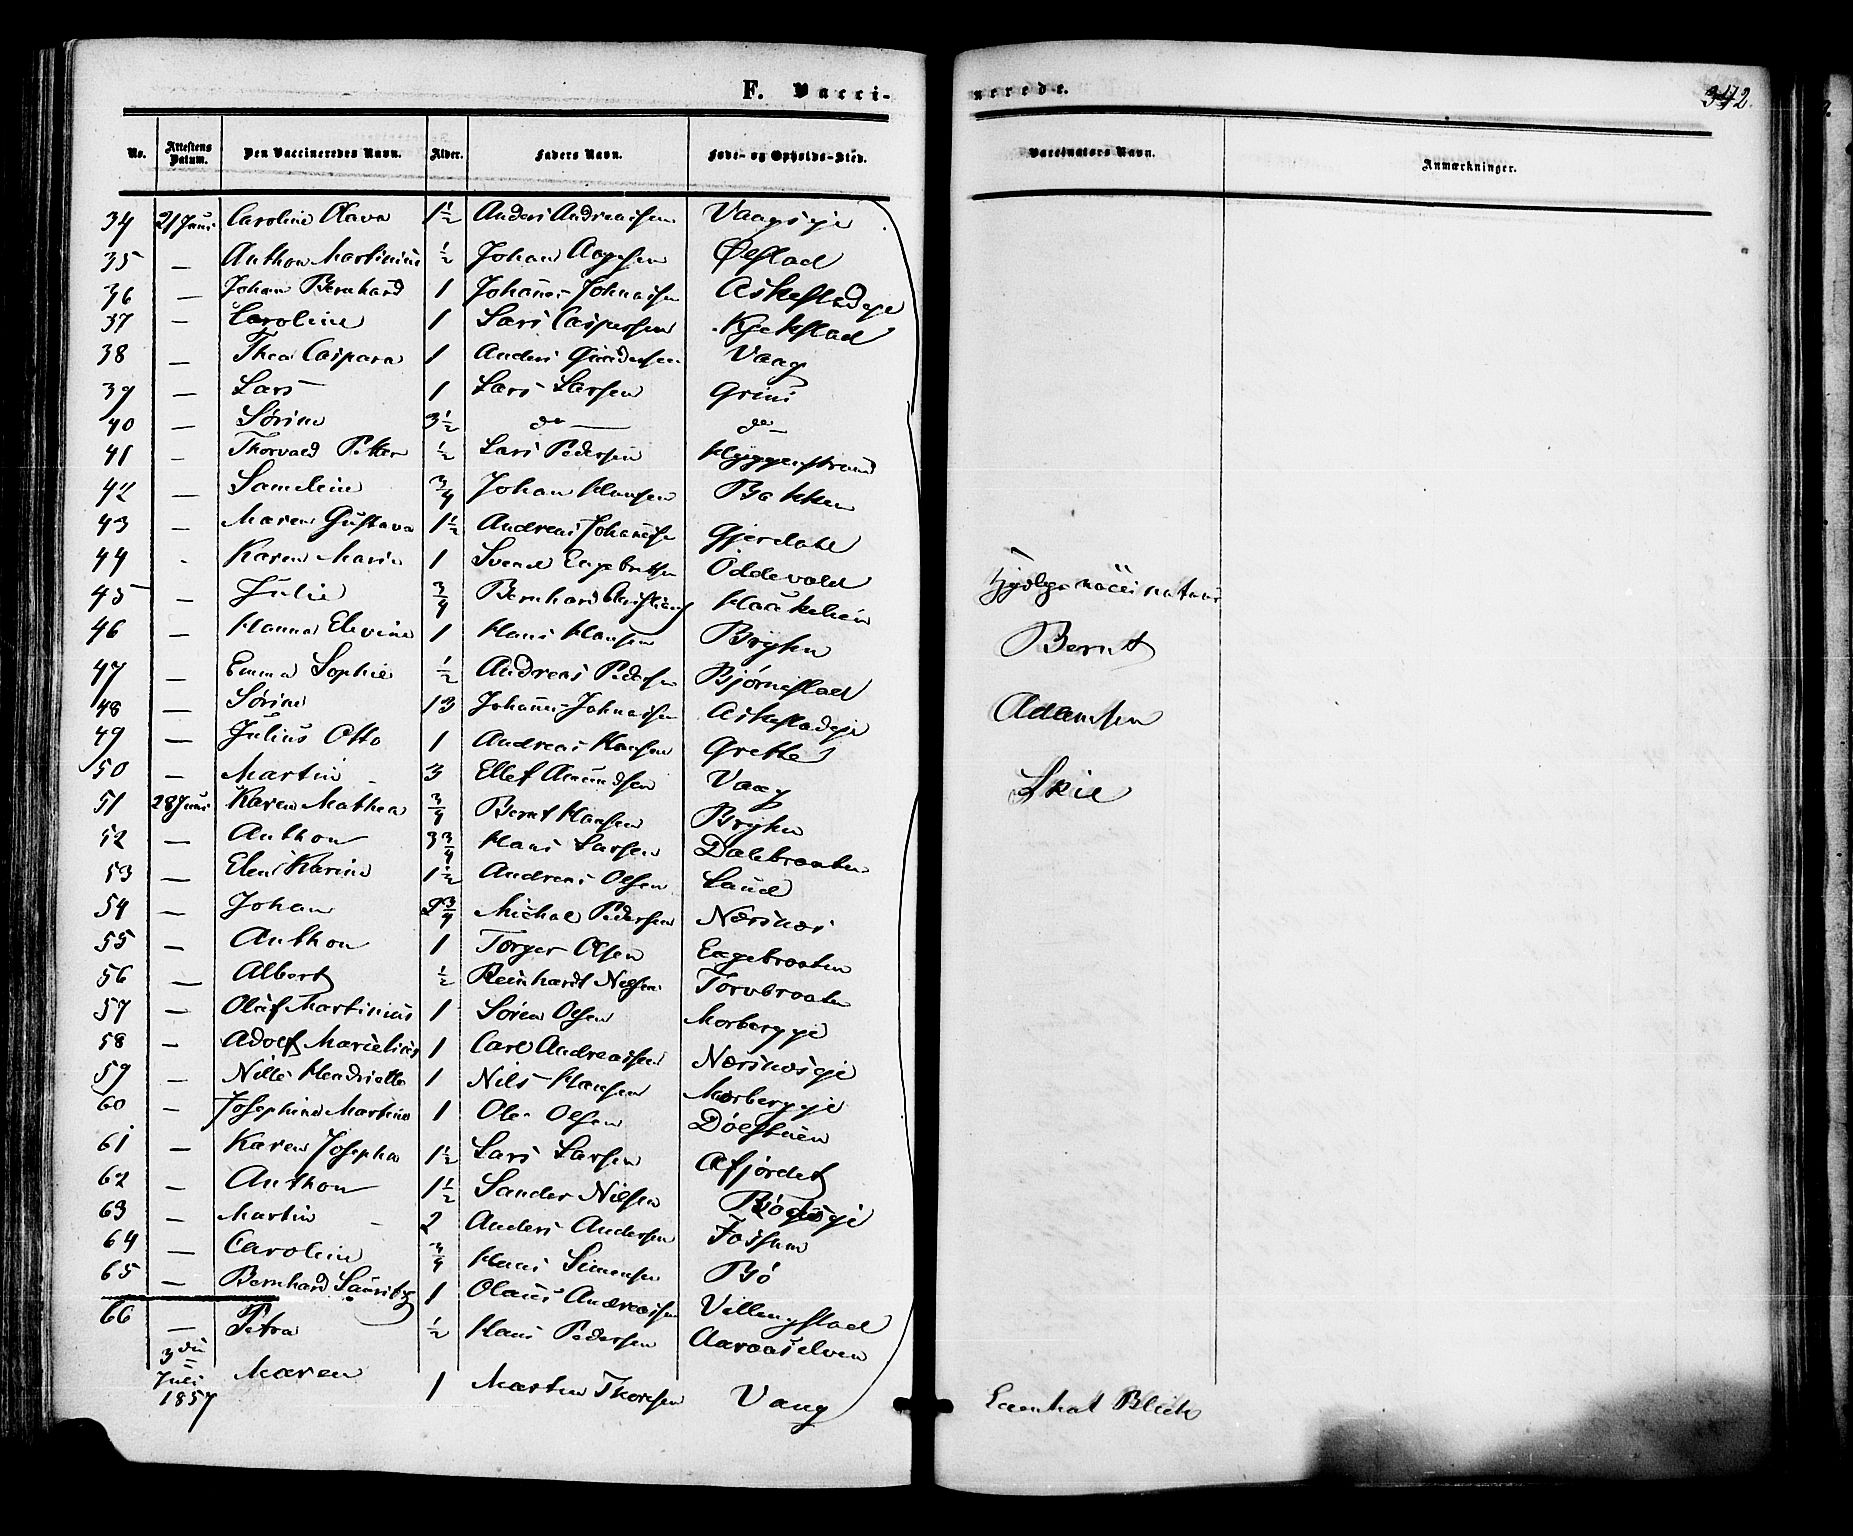 F. Vacci-
nerede.
342.
No. Attestens Datum. Den Vaccineredes Navn. Alder. Faders Navn. Føde- og Opholds-Sted. Vaccinators Navn. Anmærkninger.
34 21 Juni Caroline Olava 1½ Anders Andreassen Vaagseje
35 — Anthon Martinius ½ Johan Aagesen Ølstad
36 — Johan Bernhard 1 Johannes Johnassen Askestadeje
37 — Caroline 1 Lars Caspersen Kjekstad
38 — Thea Caspara 1 Anders Vaag
39 — Lars 1 Lars Larsen Grini
40 — Sørine 3½ do — do —
41 — Thorvald Petter ½ Lars Pedersen Hyggenstrand
42 — Lameline ¾ Johan Hansen Bakken
43 — Maren Gustava 1½ Andreas Johannesen Gjerdahl
44 - Karen Marie 1 Svend Engebretsen Oddevald
45 — Julie ¾ Bernhard Christians Haukelien
Hjælpevaccinateur
46 — Hanna Elevine 1 Hans Hansen Bryhn
Bernt
47 — Emma Sophie ½ Andreas Pedersen Bjørnstad
48 — Sørine 13 Johannes Johnassen Askestadeje
Adamsen
49 — Julius Otto 1 Andreas Hansen Grette
50 — Martin 3 Ellef Amundsen Vaag
Skie
51 28 Juni Karen Mathea ¾ Bernt Hansen Bryhn
52 — Anthon 3¾ Hans Larsen Dalebraaten
53 — Elen Karine 1½ Andreas Olsen Laud
54 — Johan 2¾ Michal Pedersen Nærsnæs
55 — Anthon 1 Torger Olsen Engebraaten
56 — Albert ½ Reinhardt Nilsen Torvbraaten
57 — Oluf Martinius 1 Søren Olsen Morbergeje
58 — Adolf Marielius 1 Carl Andreassen Nærsnæseje
59 — Nille Hendriette 1 Nils Hansen Morbergeje
60 — Josephine Martine 1 Ole Olsen Døelstuen
61 — Karen Josepha 1½ Lars Larsen Afjordet
62 — Anthon 1½ Sander Nilsen Bøeje
63 — Martin 2 Anders Andersen Fossum
64 — Caroline ¾ Hans Simensen Bø
65 — Bernhard Lauritz 1 Olaus Andreassen Villingstad
66 — Petra ½ Hans Pedersen Aaroaselven
3die Juli 1857 Maren 1 Martin Thoresen Vaag Blich